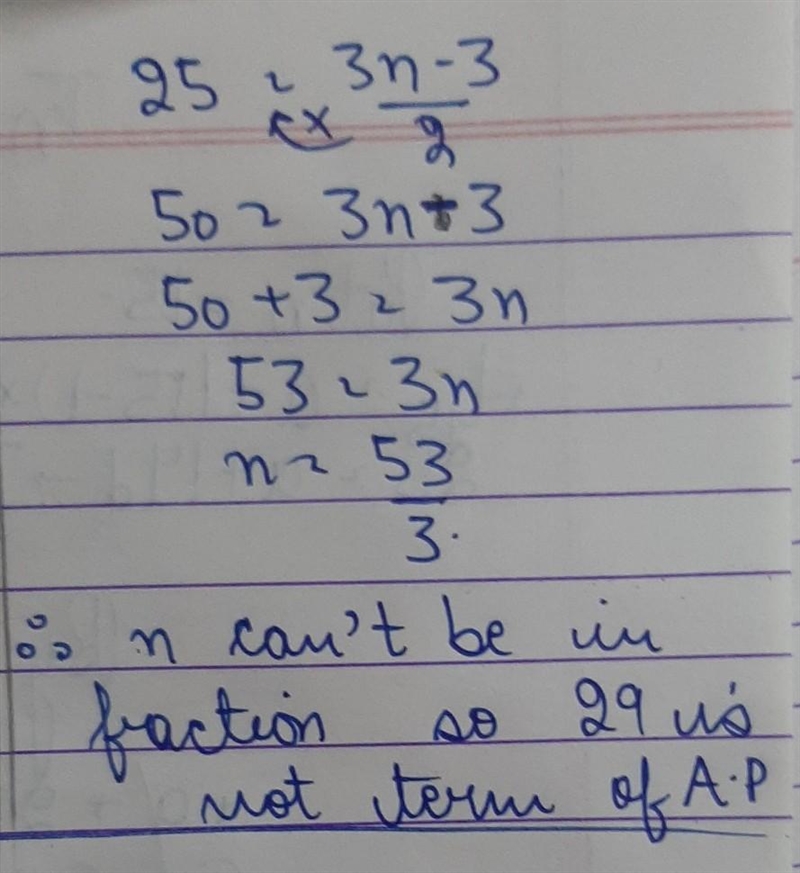 25 = 3n-3
2
50 = 3n-3
50+3 = 3n
53 = 3n
n = 53
3.
∴ n can't be in
fraction so 29 is
not term of A.P